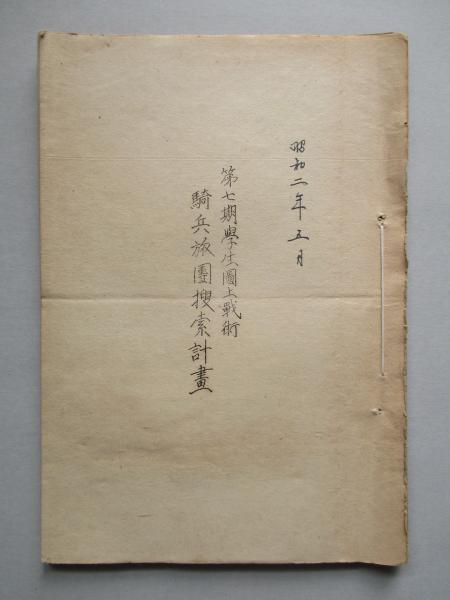 昭和二年五月
第七期學生圖上戰術
騎兵旅團搜索計畫